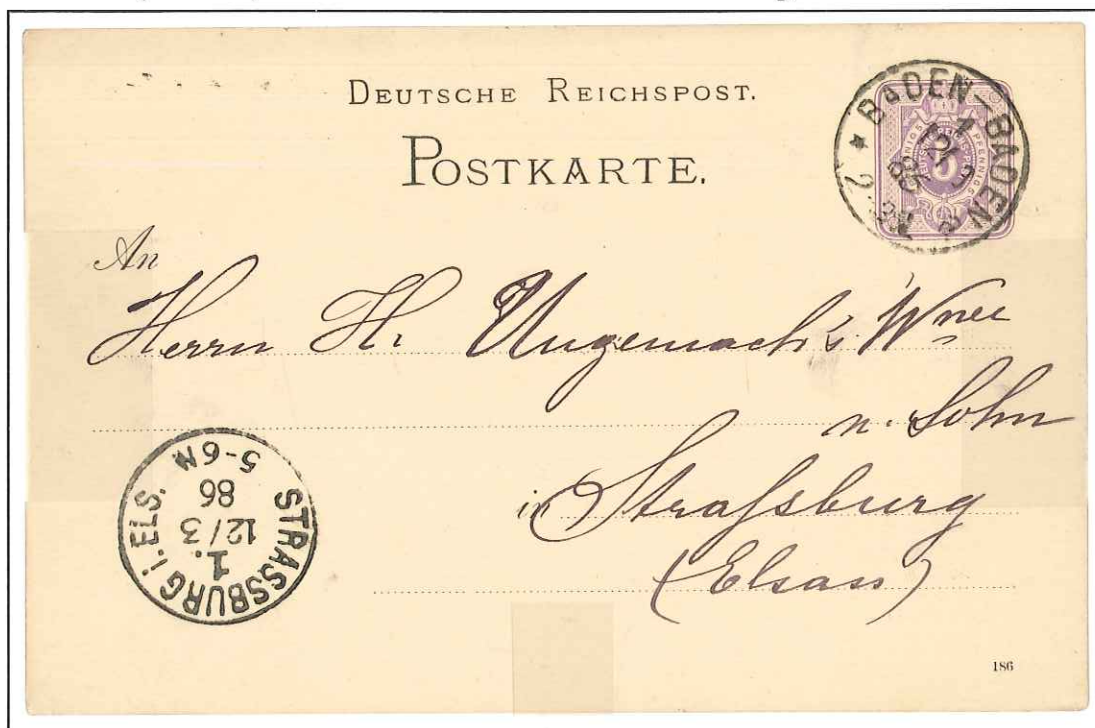 DEUTSCHE REICHSPOST.
POSTKARTE.
BADEN-BADEN
* 2.
An
Herrn H. Ungemach's Wwe
u. Sohn
in Strassburg
(Elsass)
STRASSBURG i. ELS.
1.
12/3
86
5-6N
186